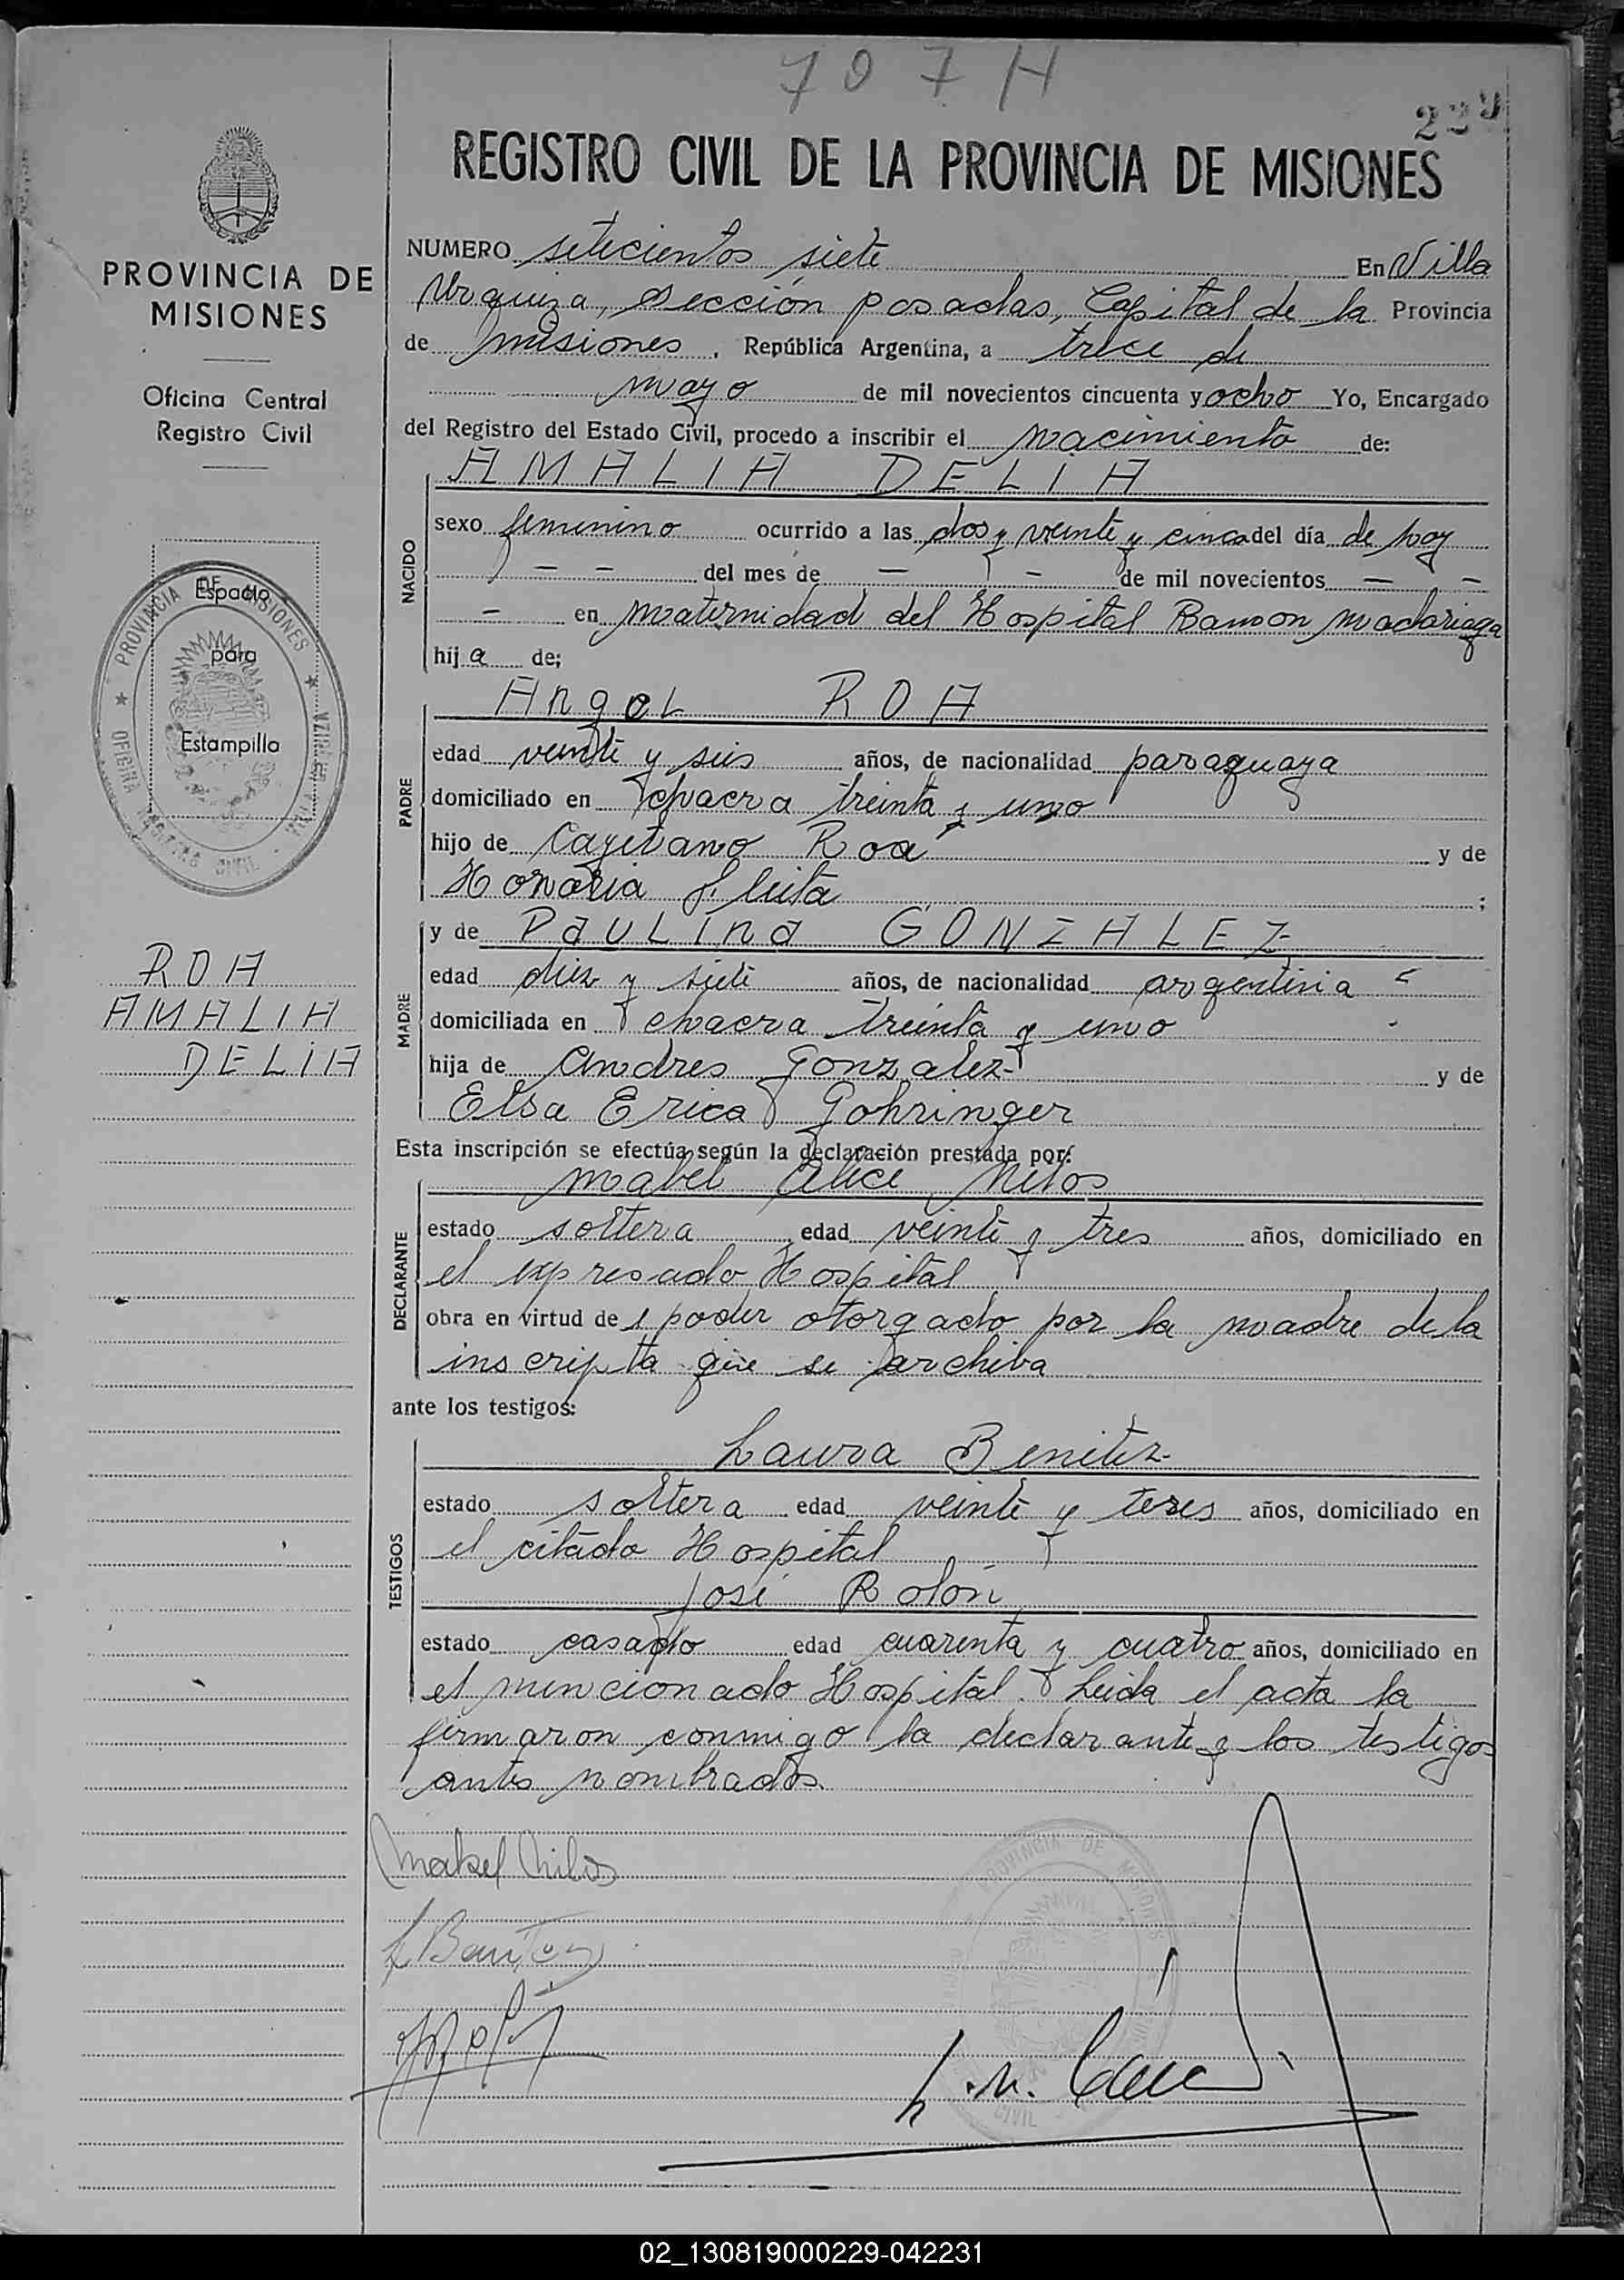 707 H
229
REGISTRO CIVIL DE LA PROVINCIA DE MISIONES
PROVINCIA DE
MISIONES
Oficina Central
Registro Civil
Espacio
para
Estampilla
PROVINCIA DE MISIONES
OFICINA REGISTRO CIVIL - VILLA URQUIZA
ROA
AMALIA
DELIA
NUMERO setecientos siete En Villa
Urquiza, sección posadas, Capital de la Provincia
de misiones, República Argentina, a trece de
mayo de mil novecientos cincuenta y ocho Yo, Encargado
del Registro del Estado Civil, procedo a inscribir el nacimiento de:
NACIDO
AMALIA DELIA
sexo femenino ocurrido a las dos y veinte y cinco del día de hoy
- - del mes de - - de mil novecientos - -
- en maternidad del Hospital Ramon Madariaga
hij a de;
PADRE
Angel ROA
edad veinte y seis años, de nacionalidad paraguaya
domiciliado en chacra treinta y uno
hijo de Cayetano Roa y de
Honoria fleita ;
MADRE
y de Paulina GONZALEZ
edad diez y siete años, de nacionalidad argentina
domiciliada en chacra treinta y uno
hija de Andres Gonzalez y de
Elsa Erica Gohringer
Esta inscripción se efectúa según la declaración prestada por:
DECLARANTE
mabel Alice
estado soltera edad veinte y tres años, domiciliado en
el expresado Hospital
obra en virtud de poder otorgado por la madre de la
inscripta que se archiva
ante los testigos:
TESTIGOS
Laura Benitez
estado soltera edad veinte y tres años, domiciliado en
el citado Hospital
José Rolón
estado casado edad cuarenta y cuatro años, domiciliado en
el mencionado Hospital. Leida el acta la
firmaron conmigo la declarante y los testigos
antes nombrados.
Mabel
L Benitez
PROVINCIA DE MISIONES
CIVIL
02_130819000229-042231